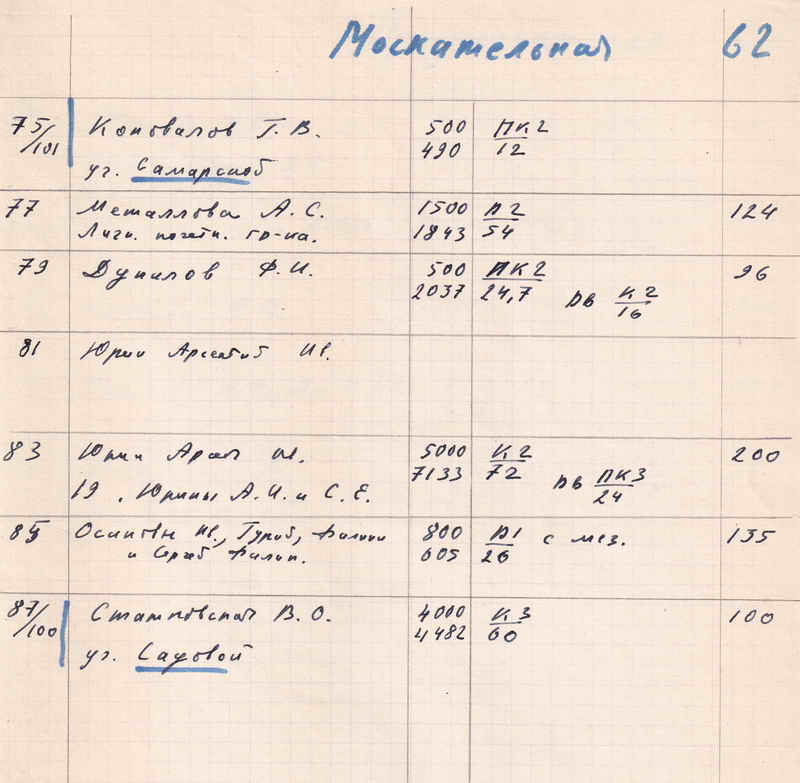 Москательная 62
75/101 Коновалов Г. В. 500 ПК2
490 12
уг. Самарской
77 Металлова А. С. 1500 П2 124
Личн. почетн. гр-ка. 1843 54
79 Ф. И. 500 ПК2 96
2037 24,7 дв К2
16
81 Юрин Арсентий Ив.
83 Юрин Арсен Ив. 5000 К2 200
7133 72 дв ПК3
19, Юрины А. И. и С. Е. 24
85 Осиповы Ив., Гурий, Филипп 800 с мез. 135
и Сергей Филип. 605 26
87/100 В. О. 4000 К3 100
4482 60
уг. Садовой